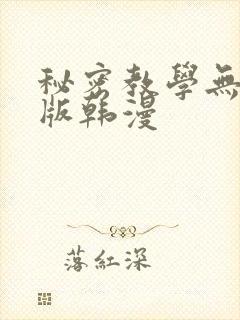 秘密教學無
版韩漫
落紅深